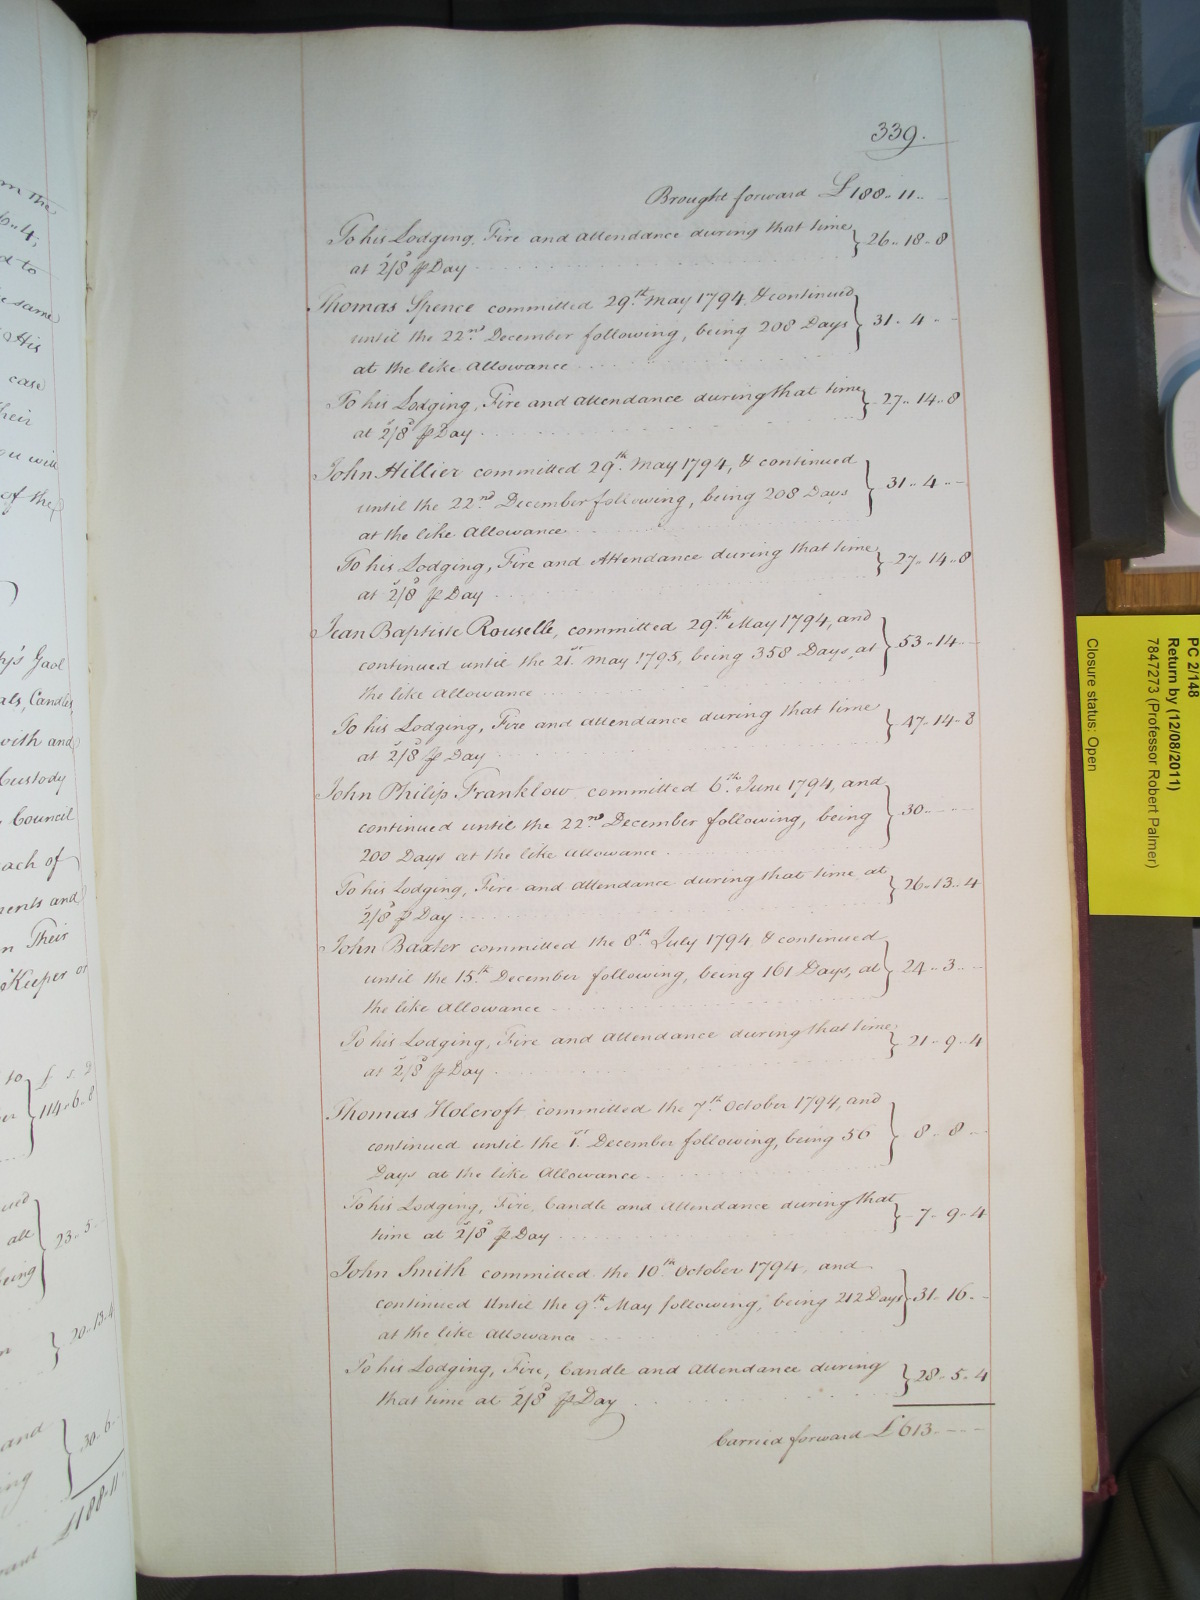 m the
6..4,
d to
e same
His
case
heir
ou will
of the
ty's Gaol
als, Candles,
with and
Custody
Council
each of
ments and
n Their
Keeper of
to
£ s d
114..6..8
ued
all
being
23..5
20..13..4
and
ing
30..6
£188..11
339.
Brought forward £188..11..
To his Lodging, Fire and attendance during that time
at 2/8 ⅌ Day
26..18..8
Thomas Spence committed 29th May 1794, & continued
until the 22nd December following, being 208 Days
at the like Allowance
31..4..
To his Lodging, Fire and attendance during that time
at 2/8 ⅌ Day
27..14..8
John Hillier committed 29th May 1794, & continued
until the 22nd December following, being 208 Days
at the like Allowance
31..4..
To his Lodging, Fire and Attendance during that time
at 2/8 ⅌ Day
27..14..8
Jean Baptiste Rouselle, committed 29th May 1794, and
continued until the 21st May 1795, being 358 Days, at
the like Allowance
53..14
To his Lodging, Fire and attendance during that time
at 2/8 ⅌ Day
47..14..8
John Philip Franklow committed 6th June 1794, and
continued until the 22nd December following, being
200 Days at the like allowance
30..
To his Lodging, Fire and attendance during that time at
2/8 ⅌ Day
26..13..4
John Baxter committed the 8th July 1794 & continued
until the 15th December following, being 161 Days, at
the like allowance
24..3..
To his Lodging, Fire and Attendance during that time
at 2/8 ⅌ Day
21..9..4
Thomas Holcroft committed the 7th October 1794, and
continued until the 1st December following, being 56
Days at the like Allowance
8..8
To his Lodging, Fire, Candle and attendance during that
time at 2/8 ⅌ Day
7..9..4
John Smith committed the 10th October 1794, and
continued Until the 9th May following, being 212 Days
at the like Allowance
31..16..
To his Lodging, Fire, Candle and Attendance during
that time at 2/8 ⅌ Day
28..5..4
Carried forward £613..
PC 2/148
Return by (12/08/2011)
7847273 (Professor Robert Palmer)
Closure status: Open